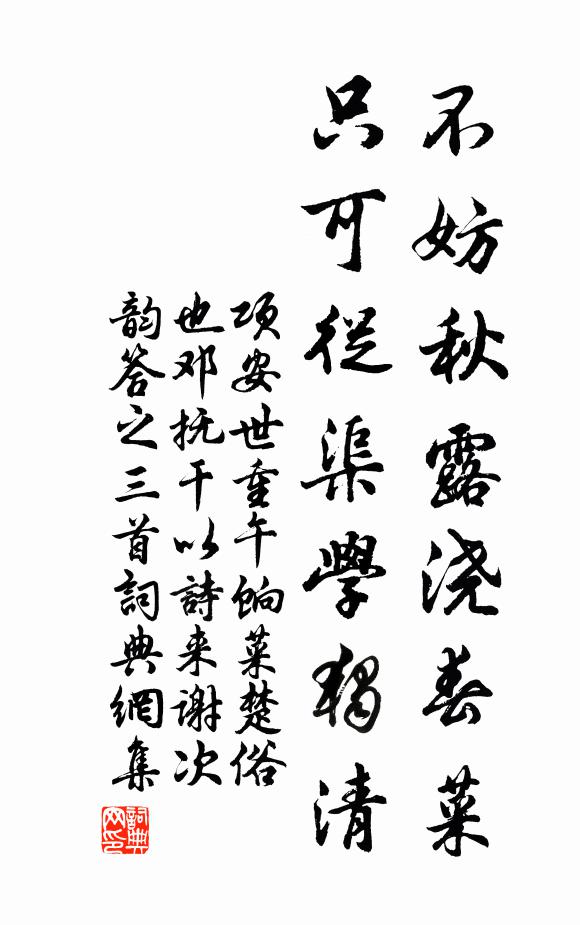 不妨秋露浇春菜
只可從渠學獨清
项安世重午餉菜楚俗
也邓抚干以詩来谢次
韵答之三首詞典網集
詞典网印